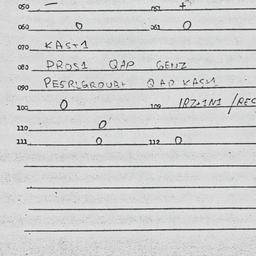 050 — 051 +
060 0 061 0
070 KAS+1
080 PROS1 QAP GENZ
090 QAP
100 0 109
110 0
111 0 112 0